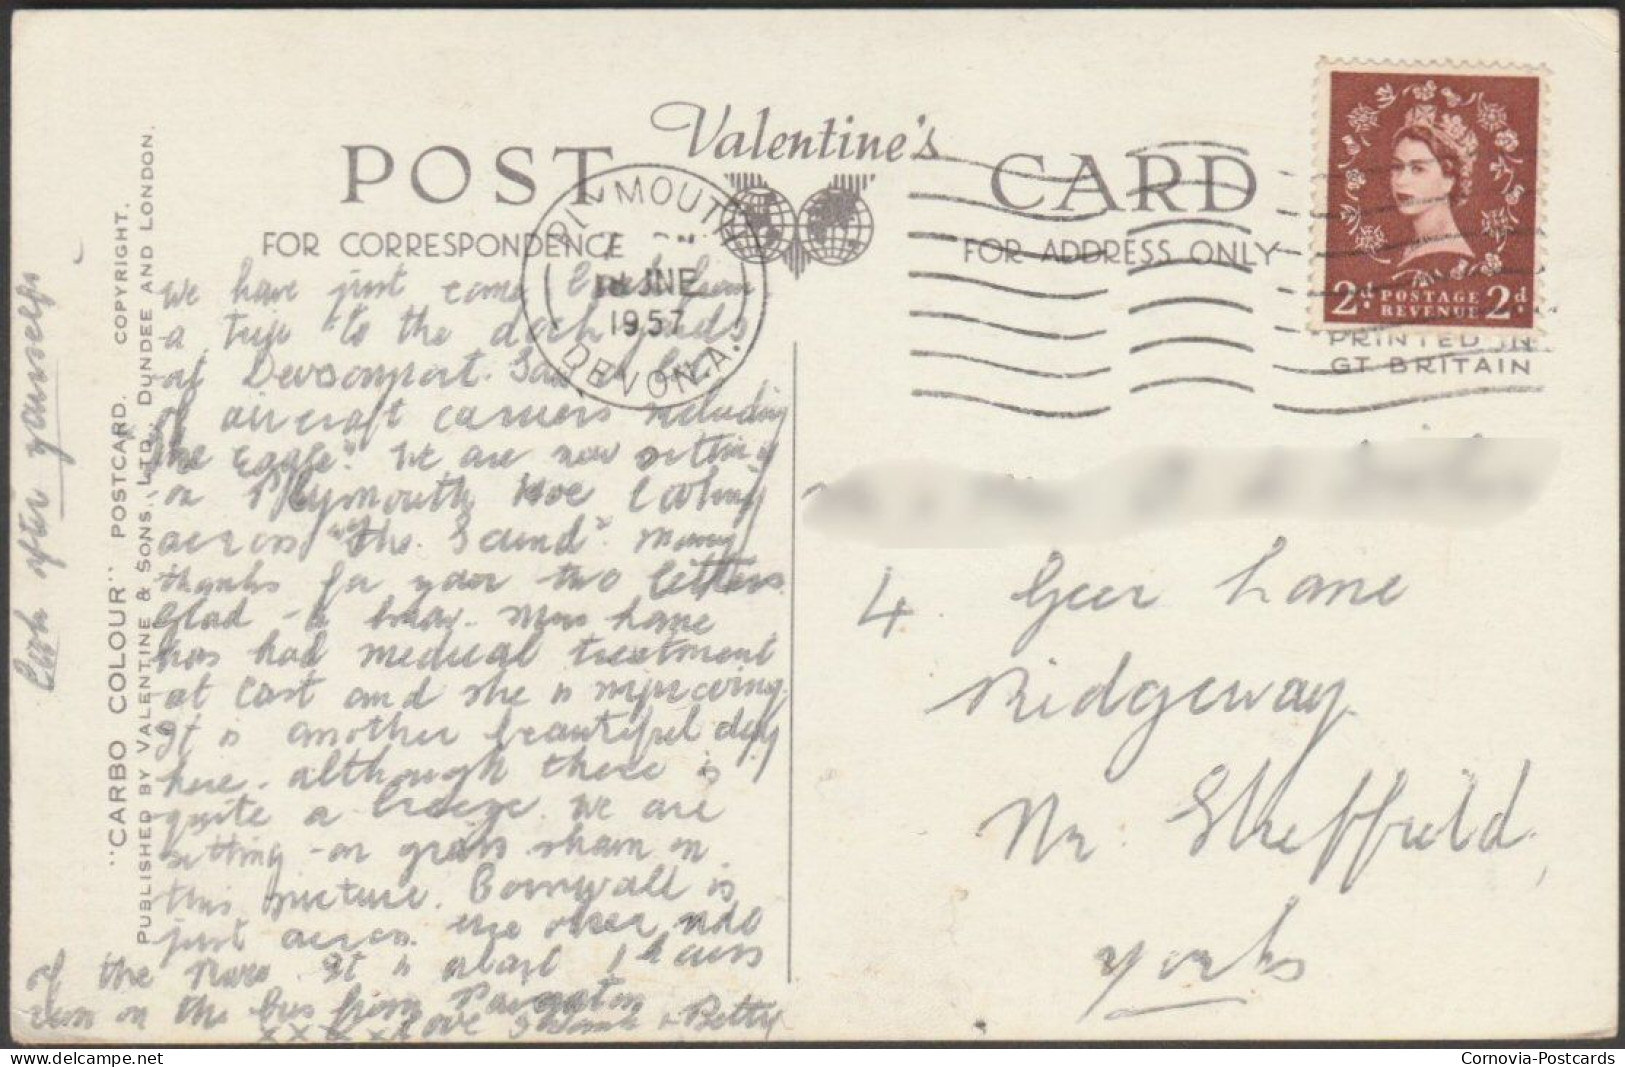 Valentine's
POST CARD
FOR CORRESPONDENCE
FOR ADDRESS ONLY
PLYMOUTH
JUNE
1957
DEVON.A.
2d. POSTAGE 2d.
REVENUE
PRINTED IN
GT BRITAIN
"CARBO COLOUR" POSTCARD. COPYRIGHT.
PUBLISHED BY VALENTINE & SONS, LTD., DUNDEE AND LONDON.
We have just come back from
a trip to the dockyards
at Devonport. Saw a lot
of aircraft carriers including
the Eagle". We are now sitting
on Plymouth Hoe looking
across "the Sound" Many
thanks for your two letters
Glad to hear Miss Lane
has had medical treatment
at last and she is improving.
It is another beautiful day
here. although there is
quite a breeze. We are
sitting on grass shown on
this picture. Cornwall is
just across the other side
of the River. It is about 1 hours
run on the bus from Paignton
xxxxx Love + Betty
Look after yourselves
4 Geer Lane
Ridgeway
Nr. Sheffield,
Yorks
Cornovia-Postcards